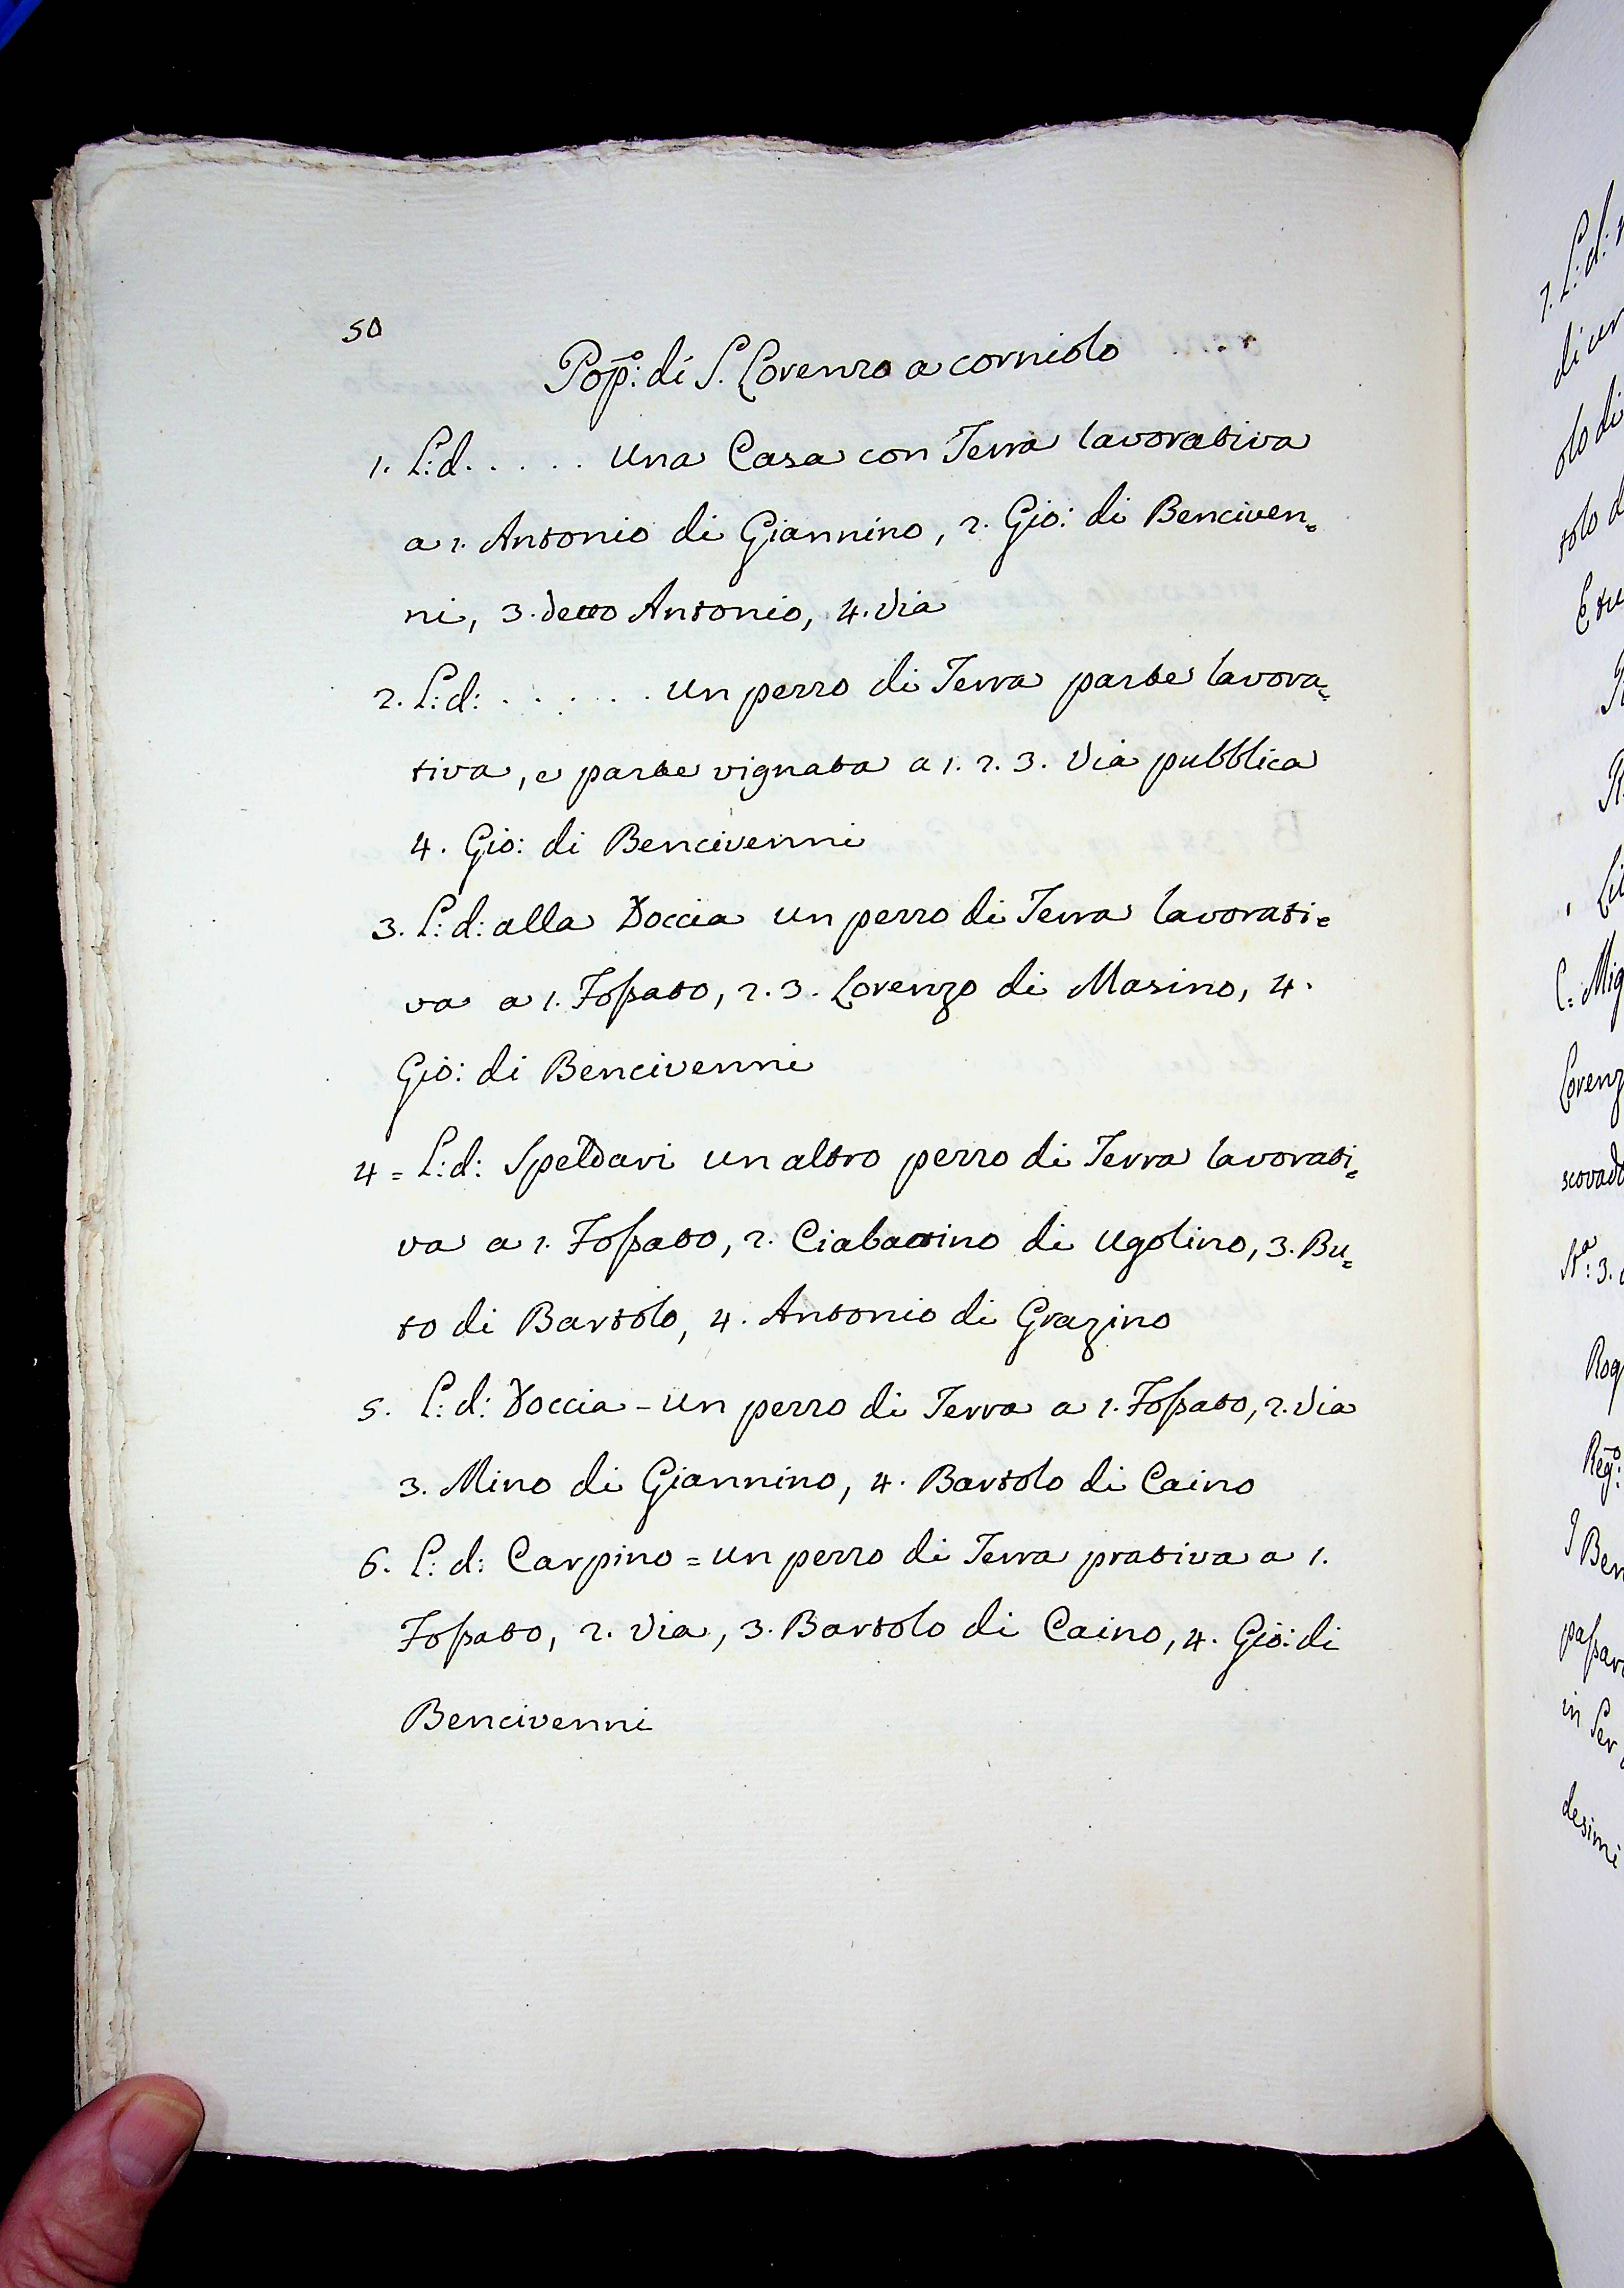 50
Pop̃o: di S. Lorenzo a corniolo
1. L: d. . . . . . una Casa con Terra lavorativa
a 1. Antonio di Giannino, 2. Gio: di Benciven=
ni, 3. detto Antonio, 4. Via
2. L: d: . . . . . . un pezzo di Terra parte lavora=
tiva, e parte vignata a 1. 2. 3. Via pubblica
4. Gio: di Bencivenni
3. L: d: alla Doccia un pezzo di Terra lavorati=
va a 1. Fossato, 2. 3. Lorenzo di Masino, 4.
Gio: di Bencivenni
4 = L: d: Speldari un altro pezzo di Terra lavorati=
va a 1. Fossato, 2. Ciabattino di Ugolino, 3. Bu=
to di Bartolo, 4. Antonio di Grazino
5. L: d: Doccia - un pezzo di Terra a 1. Fossato, 2. Via
3. Mino di Giannino, 4. Bartolo di Caino
6. L: d: Carpino = un pezzo di Terra prativa a 1.
Fossato, 2. Via, 3. Bartolo di Caino, 4. Gio: di
Bencivenni
7. L: d:
olo di
Rog
in Ser
desimi